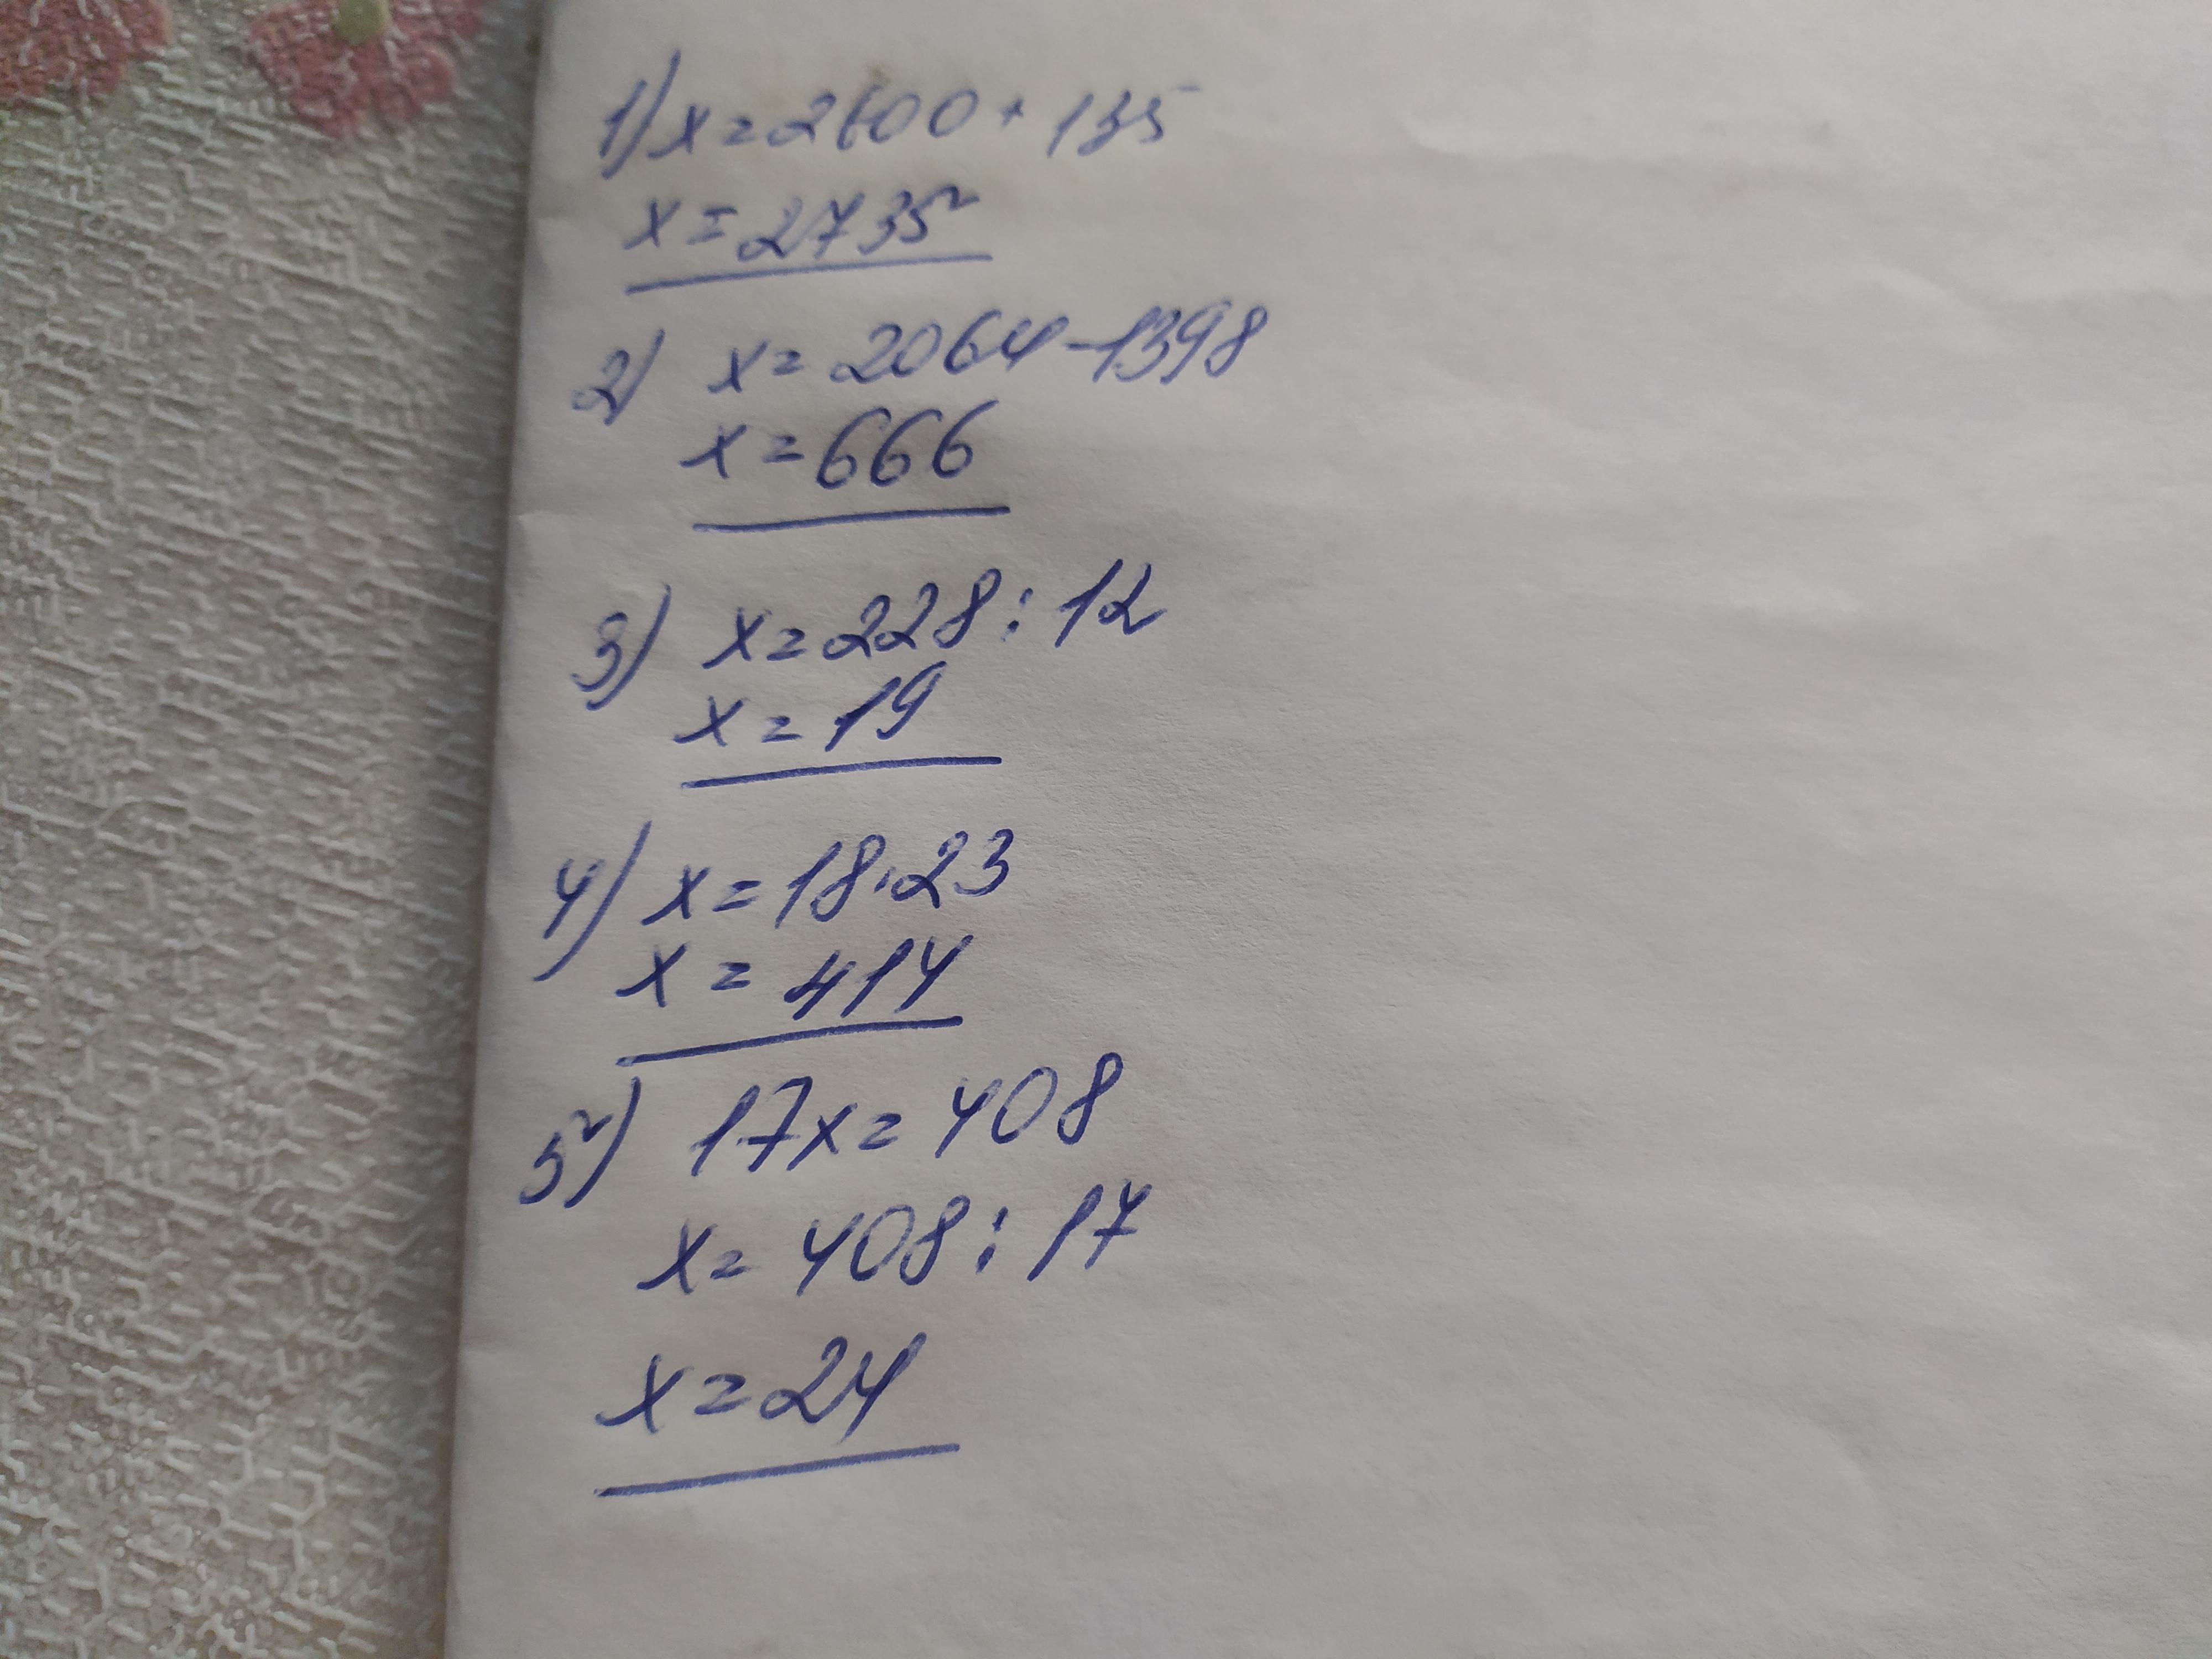 1) x=2600+135
x=2735
2) x=2064-1398
x=666
3) x=228:12
x=19
4) x=18·23
x=414
5) 17x=408
x=408:17
x=24